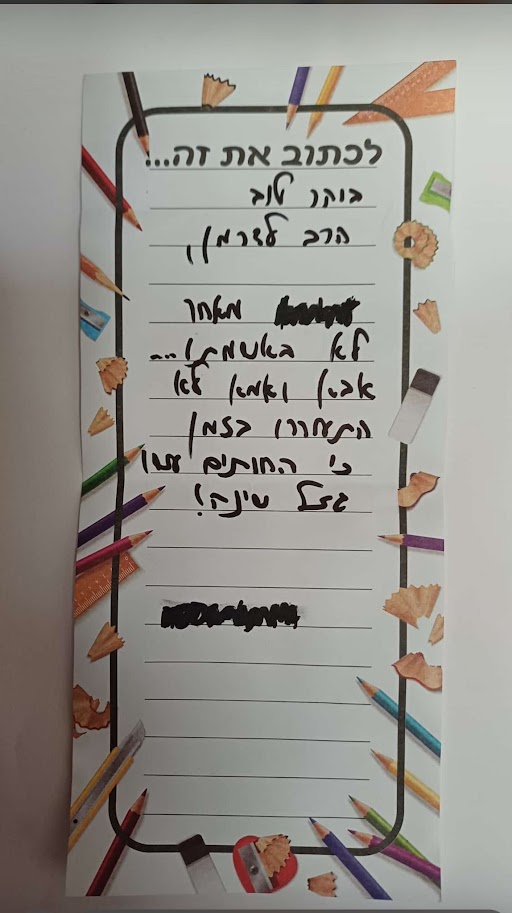 לכתוב את זה...
בוקר טוב
הרב לדרמן,
מאחר
לא באשמתו...
אבא ואמא לא
התעוררו בזמן
כי החותים עשו
גזל שינה!